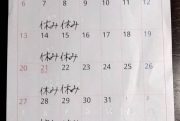 6 7 8 9 10 11 12
休み 休み
13 14 15 16 17 18 19
休み 休み
20 21 22 23 24 25 26
休み 休み
27 28 29 30 31